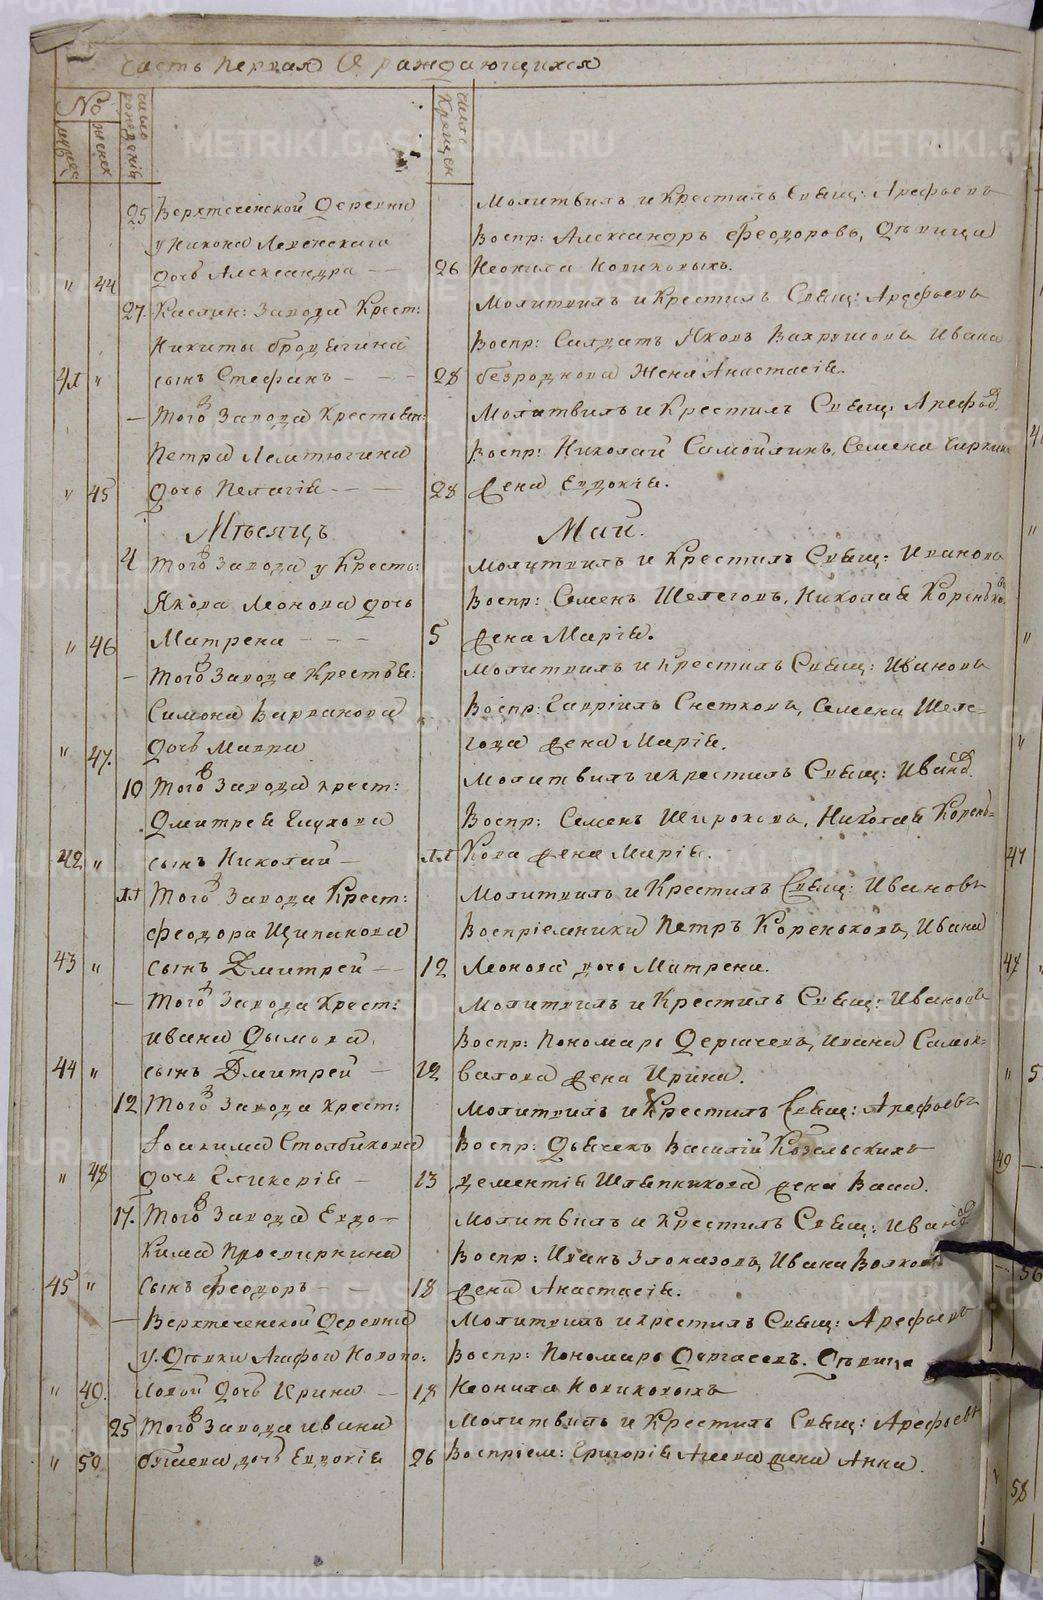 часть первая О раждающихся
№
мужес
женск
число рождений
число Крещен
25 Верхтеченской Деревни
у Никона
дочь Александра
" 44
26
Молитвилъ и Крестилъ Священ: Арефьевъ
Воспр: Александръ Феодоровъ, Девица
Неонила Новиковыхъ.
27. Каслин: Завода Крест:
Никиты
41 " сынъ Стефанъ
28
Молитвилъ и Крестилъ Свящ: Арефьевъ
Воспр: Салдатъ Яковъ Вахрушовъ Ивана
безроднова Жена Анастасія.
— Того Завода Крестьян:
Петра
" 45 дочь Пелагія
28
Молитвилъ и Крестилъ Свящ: Арефьев
Воспр: Николай Самойлинъ, Семена
жена Евдокія.
Месяцъ Май.
4 Того Завода у Кресть:
Якова Леонова дочь
" 46 Матрена
5
Молитвилъ и Крестилъ Свящ: Ивановъ
Воспр: Семенъ Шелеговъ, Николая Коренькова
жена Марія.
— Того Завода Крестья:
Симона Варванова
" 47. дочь Мавра
Молитвилъ и крестилъ Свящ: Ивановъ
Воспр: Гавріилъ Снетковъ, Семена Шеле-
гова жена Марія.
10 Того Завода крест:
Дмитрея Глухова
42 " сынъ Николай
11
Молитвилъ и крестилъ Свящ: Иванов
Воспр: Семенъ Широковъ, Николая Корень-
Кова жена Марія.
11 Того Завода Крест:
Феодора Щипанова
43 " сынъ Дмитрей
12
Молитвилъ и Крестилъ Свящ: Ивановъ
Воспріемники Петръ Кореньковъ, Ивана
Леонова дочь Матрена.
— Того Завода Крест:
ивана Дымова
44 " сынъ Дмитрей
12
Молитвилъ и Крестилъ Свящ: Ивановъ
Воспр: Пономарь Дергачевъ, Ивана Самох-
валова жена Ирина.
12 Того Завода крест:
Іоакима Столбикова
" 48 дочь Гликерія
13
Молитвилъ и Крестилъ Свящ: Арефьевъ
Воспр: Дьячекъ Василій Козельскихъ
дементія Шляпникова жена Васа.
17. Того Завода Евдо-
кима Просвиркина
45 " сынъ Феодоръ
18
Молитвилъ и Крестилъ Свящ: Иванов
Воспр: Иванъ Злоказовъ, Ивана Волкова
жена Анастасія.
— Верхтеченской Деревни
у Девки Агафьи Новопо-
" 49. ловой дочь Ирина
18
Молитвилъ и крестилъ Свящ: Арефьевъ
Воспр: Пономарь Дергачевъ. Девица
Неонила Новиковыхъ
25 Того Завода ивана
" 50. дочь Евдокія
26
Молитвилъ и Крестилъ Свящ: Арефьевъ
Воспріем: Григорія Агеева жена Анна.
METRIKI.GASO-URAL.RU